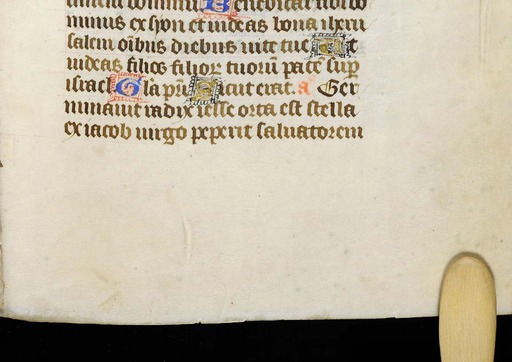 timent dominum Benedicat tibi do
minus ex syon et uideas bona ihrlm
salem oibus diebus uite tue Et
uideas filios filior tuorū pacē sup
israel Gla pri Sicut erat. a Ger
minauit radix iesse orta est stella
ex iacob uirgo peperit saluatorem